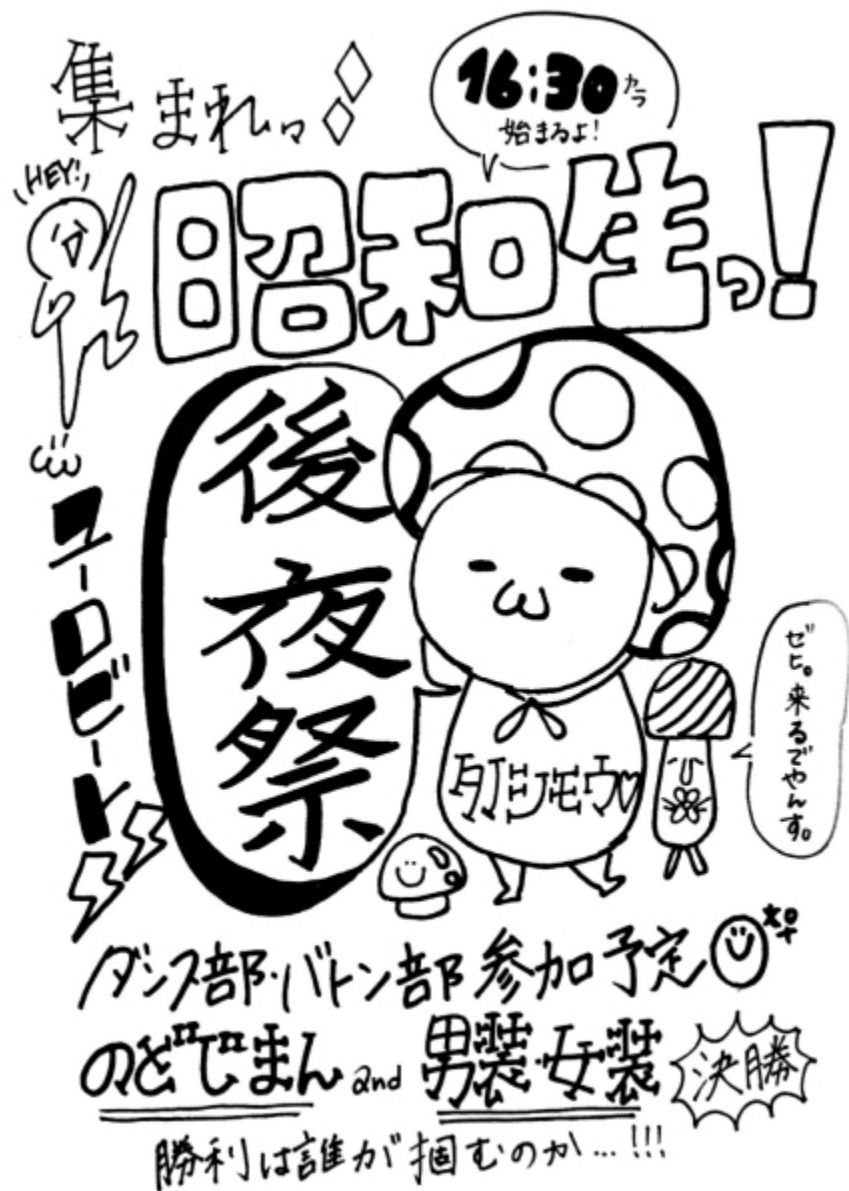 集まれッ
16:30カラ
始まるよ!
HEY!
昭和生っ!
後夜祭
ユーロビート
タノシモウ♡
ゼヒ。来るでやんす。
ダンス部・バトン部 参加予定
のどじまん 2nd 男装・女装 決勝
勝利は誰が掴むのか…!!!